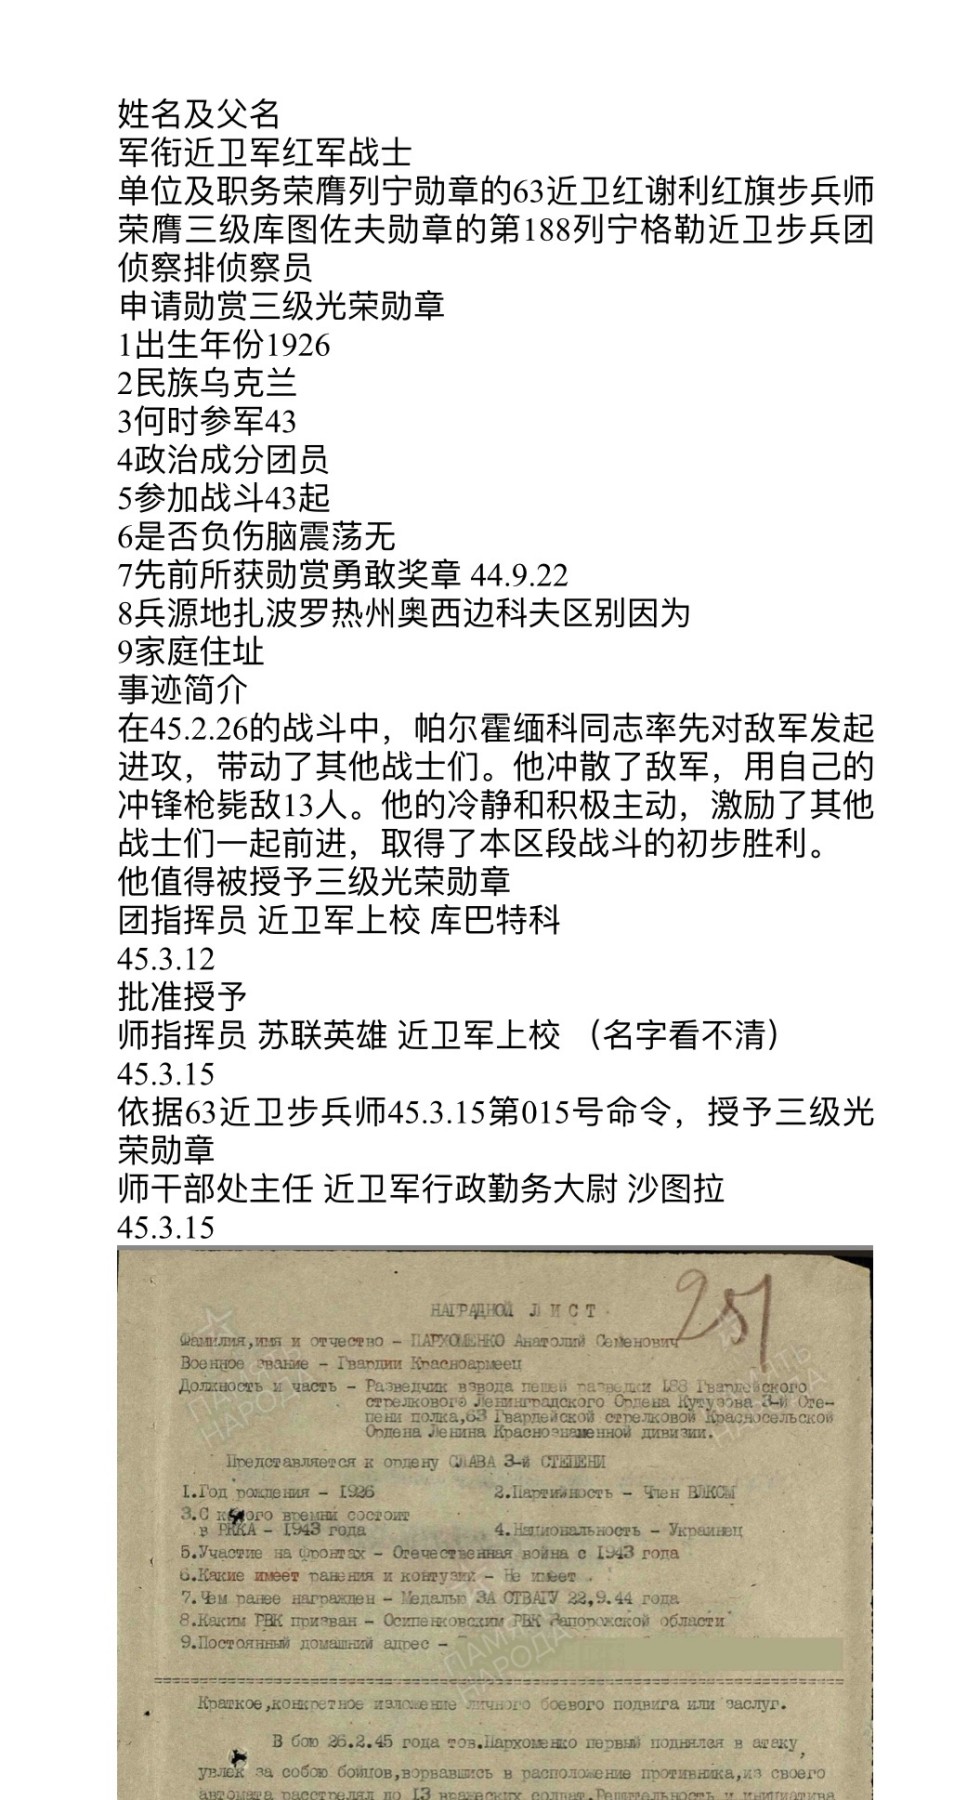 姓名及父名
军衔近卫军红军战士
单位及职务荣膺列宁勋章的63近卫红谢利红旗步兵师
荣膺三级库图佐夫勋章的第188列宁格勒近卫步兵团
侦察排侦察员
申请勋赏三级光荣勋章
1出生年份1926
2民族乌克兰
3何时参军43
4政治成分团员
5参加战斗43起
6是否负伤脑震荡无
7先前所获勋赏勇敢奖章 44.9.22
8兵源地扎波罗热州奥西边科夫区别因为
9家庭住址
事迹简介
在45.2.26的战斗中，帕尔霍缅科同志率先对敌军发起
进攻，带动了其他战士们。他冲散了敌军，用自己的
冲锋枪毙敌13人。他的冷静和积极主动，激励了其他
战士们一起前进，取得了本区段战斗的初步胜利。
他值得被授予三级光荣勋章
团指挥员 近卫军上校 库巴特科
45.3.12
批准授予
师指挥员 苏联英雄 近卫军上校 （名字看不清）
45.3.15
依据63近卫步兵师45.3.15第015号命令，授予三级光
荣勋章
师干部处主任 近卫军行政勤务大尉 沙图拉
45.3.15
251
НАГРАДНОЙ ЛИСТ
Фамилия,имя и отчество - ПАРХОМЕНКО Анатолий Семенович
Военное звание - Гвардии Красноармеец
Должность и часть - Разведчик взвода пешей разведки 188 Гвардейского
стрелкового Ленинградского Ордена Кутузова 3-й Сте-
пени полка,63 Гвардейской стрелковой Красносельской
Ордена Ленина Краснознаменной дивизии.
Представляется к ордену СЛАВА 3-й СТЕПЕНИ
1.Год рождения - 1926 2.Партийность - Член ВЛКСМ
3.С какого времни состоит
в РККА - 1943 года 4.Национальность - Украинец
5.Участие на фронтах - Отечественная война с 1943 года
6.Какие имеет ранения и контузии - Не имеет.
7.Чем ранее награжден - Медалью ЗА ОТВАГУ 22,9.44 года
8.Каким РВК призван - Осипенковским РВК Запорожской области
9.Постоянный домашний адрес -
Краткое,конкретное изложение личного боевого подвига или заслуг.
В бою 26.2.45 года тов.Пархоменко первый поднялся в атаку,
увлек за собою бойцов,ворвавшись в расположение противника,из своего
автомата расстрелял до 13 вражеских солдат.Решительность и инициатива
ПАМЯТЬ НАРОДА
ПАМЯТЬ НАРОДА
ПАМЯТЬ НАРОДА